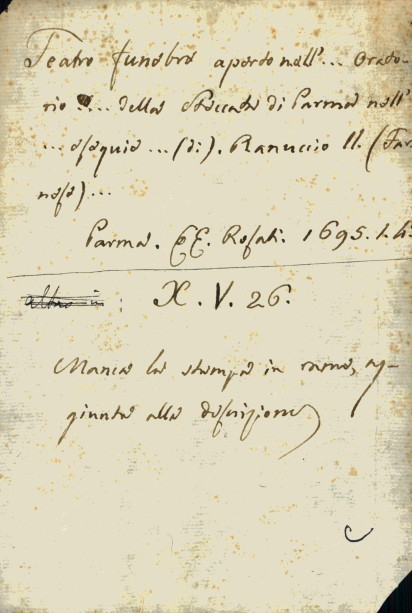 Teatro funebre aperto nell'... Orato-
rio ... della Steccata di Parma nell'
... esequie ... (di). Ranuccio II. (Far
nese) ...
Parma. EE. Rosati. 1695. 1. 4
altro in : X. V. 26.
Manca la stampa in rame, ag-
giunta alla descrizione
C